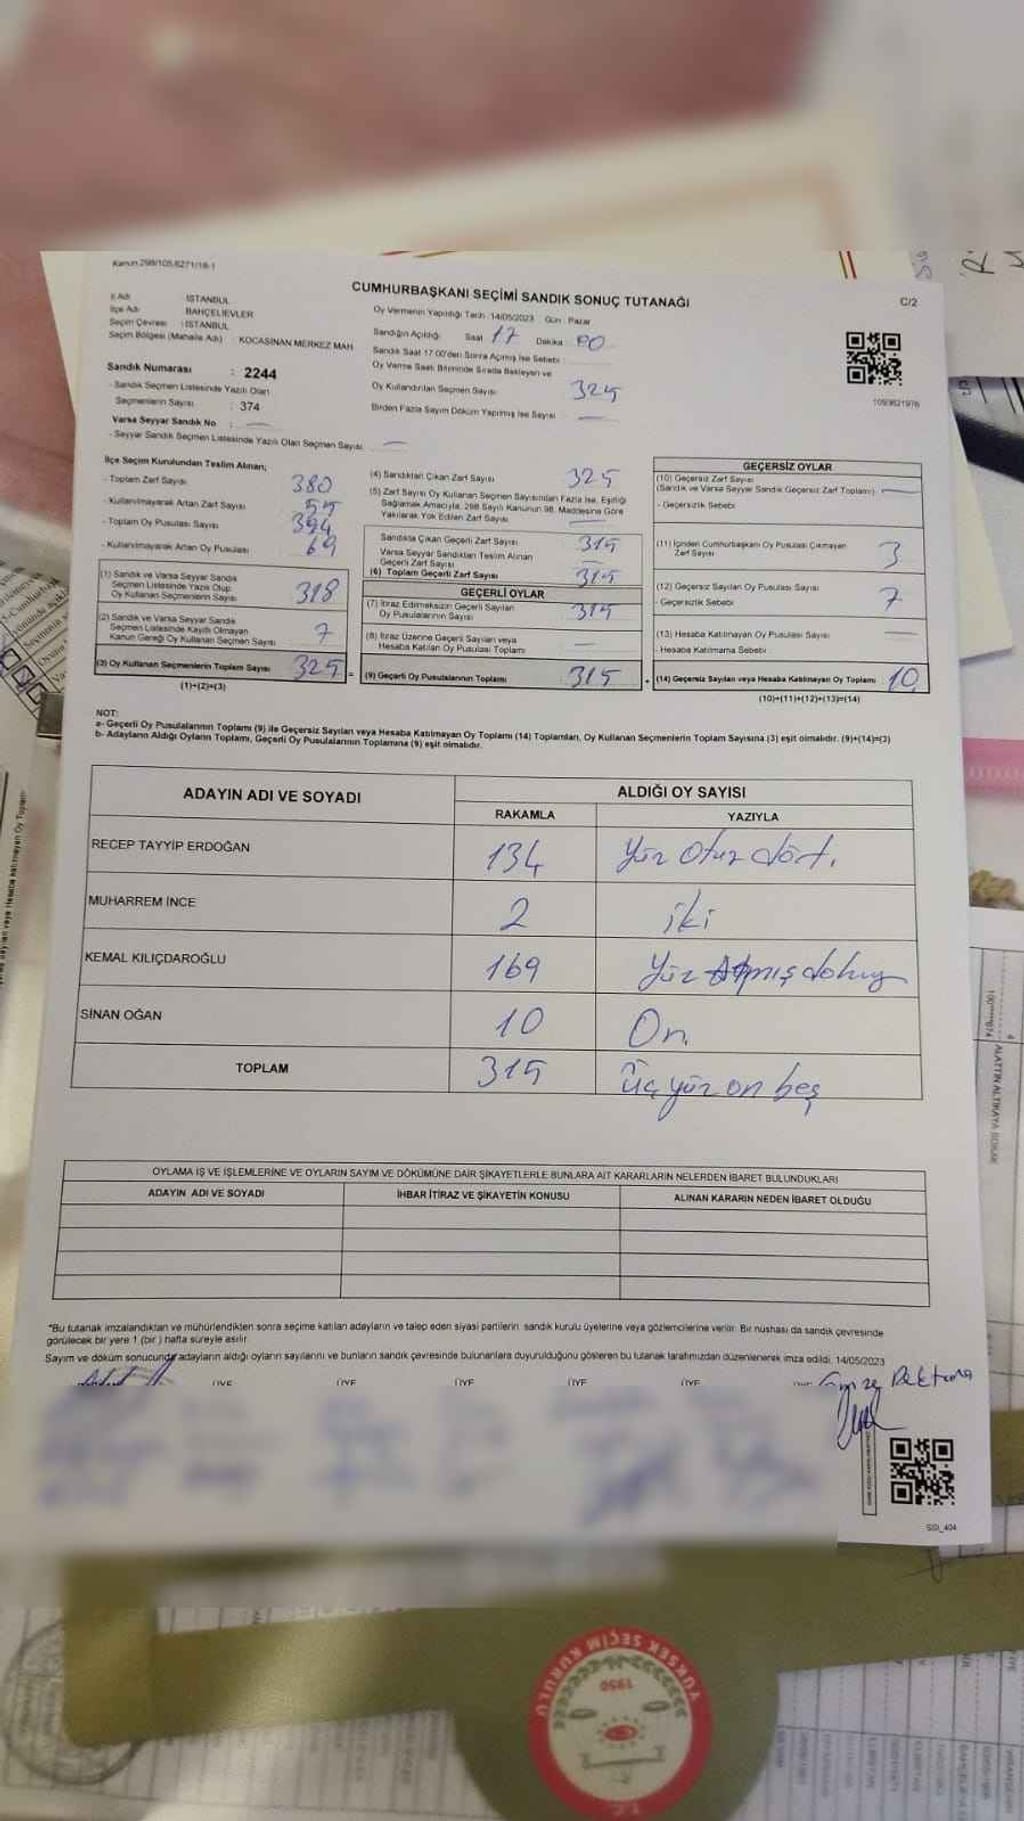 Kanun 298/105,6271/18-1
CUMHURBAŞKANI SEÇİMİ SANDIK SONUÇ TUTANAĞI
C/2
İl Adı : İSTANBUL
İlçe Adı : BAHÇELİEVLER
Seçim Çevresi : İSTANBUL
Seçim Bölgesi (Mahalle Adı) : KOCASİNAN MERKEZ MAH
Sandık Numarası : 2244
- Sandık Seçmen Listesinde Yazılı Olan
Seçmenlerin Sayısı : 374
Varsa Seyyar Sandık No :
- Seyyar Sandık Seçmen Listesinde Yazılı Olan Seçmen Sayısı
Oy Vermenin Yapıldığı Tarih :14/05/2023 Gün : Pazar
Sandığın Açıldığı Saat 17 Dakika 00
Sandık Saat 17:00'den Sonra Açılmış İse Sebebi :
Oy Verme Saati Bitiminde Sırada Bekleyen ve
Oy Kullandırılan Seçmen Sayısı 325
Birden Fazla Sayım Döküm Yapılmış İse Sayısı
1093621976
İlçe Seçim Kurulundan Teslim Alınan;
- Toplam Zarf Sayısı 380
- Kullanılmayarak Artan Zarf Sayısı 55
- Toplam Oy Pusulası Sayısı 394
- Kullanılmayarak Artan Oy Pusulası 69
(1) Sandık ve Varsa Seyyar Sandık
Seçmen Listesinde Yazılı Olup
Oy Kullanan Seçmenlerin Sayısı 318
(2) Sandık ve Varsa Seyyar Sandık
Seçmen Listesinde Kayıtlı Olmayan
Kanun Gereği Oy Kullanan Seçmen Sayısı 7
(3) Oy Kullanan Seçmenlerin Toplam Sayısı 325 =
(1)+(2)=(3)
(4) Sandıktan Çıkan Zarf Sayısı 325
(5) Zarf Sayısı Oy Kullanan Seçmen Sayısından Fazla İse, Eşitliği
Sağlamak Amacıyla, 298 Sayılı Kanunun 98. Maddesine Göre
Yakılarak Yok Edilen Zarf Sayısı
Sandıkta Çıkan Geçerli Zarf Sayısı 315
Varsa Seyyar Sandıktan Teslim Alınan
Geçerli Zarf Sayısı
(6) Toplam Geçerli Zarf Sayısı 315
GEÇERLİ OYLAR
(7) İtiraz Edilmeksizin Geçerli Sayılan
Oy Pusulalarının Sayısı 315
(8) İtiraz Üzerine Geçerli Sayılan veya
Hesaba Katılan Oy Pusulası Toplamı
(9) Geçerli Oy Pusulalarının Toplamı 315 +
GEÇERSİZ OYLAR
(10) Geçersiz Zarf Sayısı
(Sandık ve Varsa Seyyar Sandık Geçersiz Zarf Toplamı)
- Geçersizlik Sebebi
(11) İçinden Cumhurbaşkanı Oy Pusulası Çıkmayan
Zarf Sayısı 3
(12) Geçersiz Sayılan Oy Pusulası Sayısı 7
- Geçersizlik Sebebi
(13) Hesaba Katılmayan Oy Pusulası Sayısı
- Hesaba Katılmama Sebebi
(14) Geçersiz Sayılan veya Hesaba Katılmayan Oy Toplamı 10
(10)+(11)+(12)+(13)=(14)
NOT:
a- Geçerli Oy Pusulalarının Toplamı (9) ile Geçersiz Sayılan veya Hesaba Katılmayan Oy Toplamı (14) Toplamları, Oy Kullanan Seçmenlerin Toplam Sayısına (3) eşit olmalıdır. (9)+(14)=(3)
b- Adayların Aldığı Oyların Toplamı, Geçerli Oy Pusulalarının Toplamına (9) eşit olmalıdır.
ADAYIN ADI VE SOYADI
ALDIĞI OY SAYISI
RAKAMLA YAZIYLA
RECEP TAYYİP ERDOĞAN 134 Yüz Otuz dört.
MUHARREM İNCE 2 iki
KEMAL KILIÇDAROĞLU 169 Yüz Atmış dokuz
SİNAN OĞAN 10 On.
TOPLAM 315 Üç yüz on beş
OYLAMA İŞ VE İŞLEMLERİNE VE OYLARIN SAYIM VE DÖKÜMÜNE DAİR ŞİKAYETLERLE BUNLARA AİT KARARLARIN NELERDEN İBARET BULUNDUKLARI
ADAYIN ADI VE SOYADI İHBAR İTİRAZ VE ŞİKAYETİN KONUSU ALINAN KARARIN NEDEN İBARET OLDUĞU
*Bu tutanak imzalandıktan ve mühürlendikten sonra seçime katılan adayların ve talep eden siyasi partilerin sandık kurulu üyelerine veya gözlemcilerine verilir. Bir nüshası da sandık çevresinde
görülecek bir yere 1 (bir ) hafta süreyle asılır.
Sayım ve döküm sonucunda adayların aldığı oyların sayılarını ve bunların sandık çevresinde bulunanlara duyurulduğunu gösteren bu tutanak tarafımızdan düzenlenerek imza edildi. 14/05/2023
ÜYE ÜYE ÜYE ÜYE ÜYE
SSI_404
YÜKSEK SEÇİM KURULU
1950
T.C.